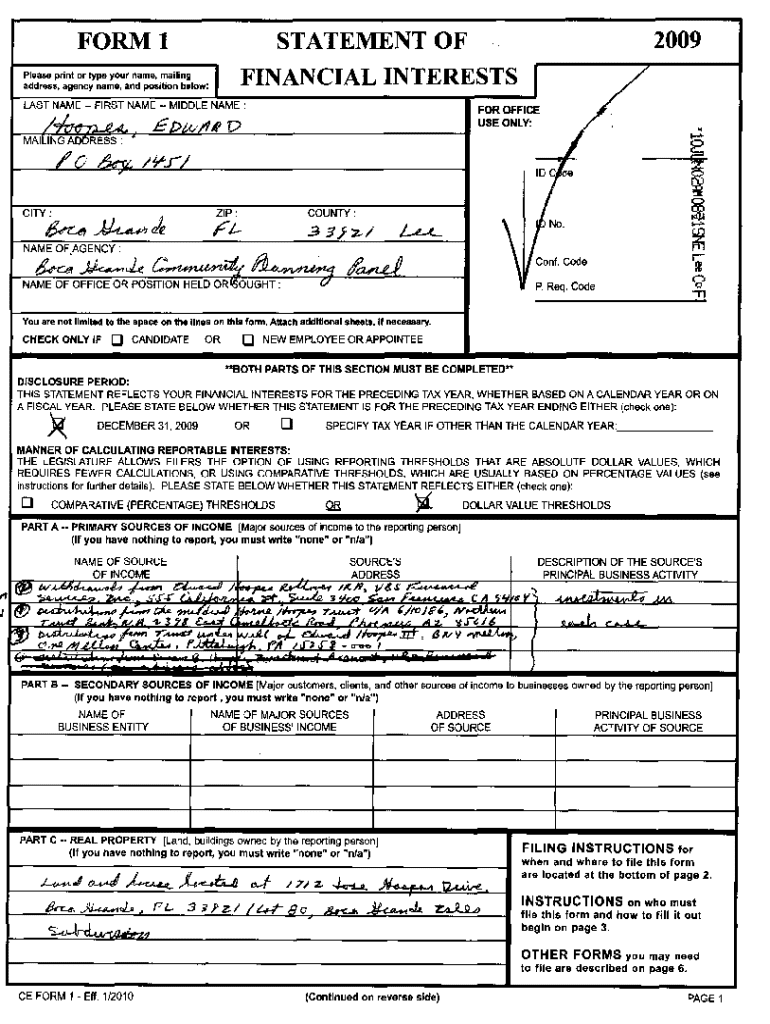 FORM 1 STATEMENT OF 2009
Please print or type your name, mailing
address, agency name, and position below:
FINANCIAL INTERESTS
LAST NAME -- FIRST NAME -- MIDDLE NAME :
Hooper, EDWARD
MAILING ADDRESS :
P O Box 1451
FOR OFFICE
USE ONLY:
ID Code
ID No.
Conf. Code
P. Req. Code
CITY : ZIP : COUNTY :
Boca Grande FL 33921 Lee
NAME OF AGENCY :
Boca Grande Community Planning Panel
NAME OF OFFICE OR POSITION HELD OR SOUGHT :
You are not limited to the space on the lines on this form. Attach additional sheets, if necessary.
CHECK ONLY IF ☐ CANDIDATE OR ☐ NEW EMPLOYEE OR APPOINTEE
**BOTH PARTS OF THIS SECTION MUST BE COMPLETED**
DISCLOSURE PERIOD:
THIS STATEMENT REFLECTS YOUR FINANCIAL INTERESTS FOR THE PRECEDING TAX YEAR, WHETHER BASED ON A CALENDAR YEAR OR ON
A FISCAL YEAR. PLEASE STATE BELOW WHETHER THIS STATEMENT IS FOR THE PRECEDING TAX YEAR ENDING EITHER (check one):
☒ DECEMBER 31, 2009 OR ☐ SPECIFY TAX YEAR IF OTHER THAN THE CALENDAR YEAR:
MANNER OF CALCULATING REPORTABLE INTERESTS:
THE LEGISLATURE ALLOWS FILERS THE OPTION OF USING REPORTING THRESHOLDS THAT ARE ABSOLUTE DOLLAR VALUES, WHICH
REQUIRES FEWER CALCULATIONS, OR USING COMPARATIVE THRESHOLDS, WHICH ARE USUALLY BASED ON PERCENTAGE VALUES (see
instructions for further details). PLEASE STATE BELOW WHETHER THIS STATEMENT REFLECTS EITHER (check one):
☐ COMPARATIVE (PERCENTAGE) THRESHOLDS OR ☒ DOLLAR VALUE THRESHOLDS
PART A -- PRIMARY SOURCES OF INCOME [Major sources of income to the reporting person]
(If you have nothing to report, you must write "none" or "n/a")
NAME OF SOURCE SOURCE'S DESCRIPTION OF THE SOURCE'S
OF INCOME ADDRESS PRINCIPAL BUSINESS ACTIVITY
Withdrawals from Edward Hooper Rollover IRA, UBS Financial
Services Inc, 555 California St, Suite 3400 San Francisco CA 94104 investments in
Distributions from the Mildred Horne Hooper Trust U/A 6/10/86, Northern
Trust Bank, N.A. 2398 East Camelback Road, Phoenix, AZ 85016 each case
Distributions from Trust under Will of Edward Hooper III, BNY Mellon,
One Mellon Center, Pittsburgh, PA 15258-0001
PART B -- SECONDARY SOURCES OF INCOME [Major customers, clients, and other sources of income to businesses owned by the reporting person]
(If you have nothing to report , you must write "none" or "n/a")
NAME OF NAME OF MAJOR SOURCES ADDRESS PRINCIPAL BUSINESS
BUSINESS ENTITY OF BUSINESS' INCOME OF SOURCE ACTIVITY OF SOURCE
PART C -- REAL PROPERTY [Land, buildings owned by the reporting person]
(If you have nothing to report, you must write "none" or "n/a")
Land and house located at 1712 Jose Gaspar Drive,
Boca Grande, FL 33921 / Lot 80, Boca Grande Isles
Subdivision
FILING INSTRUCTIONS for
when and where to file this form
are located at the bottom of page 2.
INSTRUCTIONS on who must
file this form and how to fill it out
begin on page 3.
OTHER FORMS you may need
to file are described on page 6.
CE FORM 1 - Eff. 1/2010 (Continued on reverse side) PAGE 1